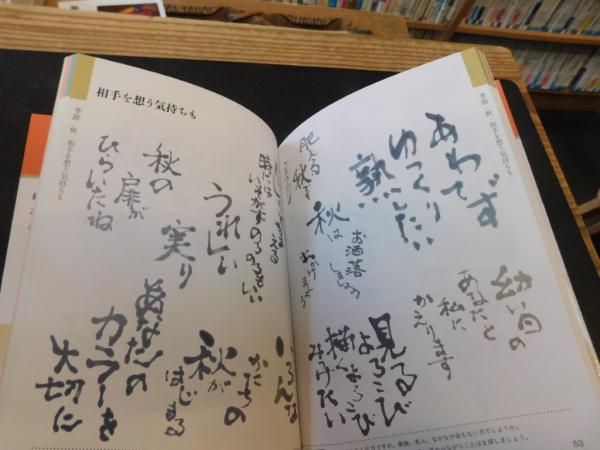 相手を想う気持ちも
季節 秋 相手を想う気持ちも
秋の
扉が
ひらいたね
うれしい
実り
時には
いそがずのるのもいい
あなたの
カラーを
大切に
いろんな
かたちの
秋が
はじまる
季節 秋 相手を想う気持ちも
あわてず
ゆっくり
熟したい
肥ゆる
秋
秋は
お洒落
しましょう
幼い日の
あなたと
私に
かえります
見るよろこび
描くよろこび
みつけたい
53